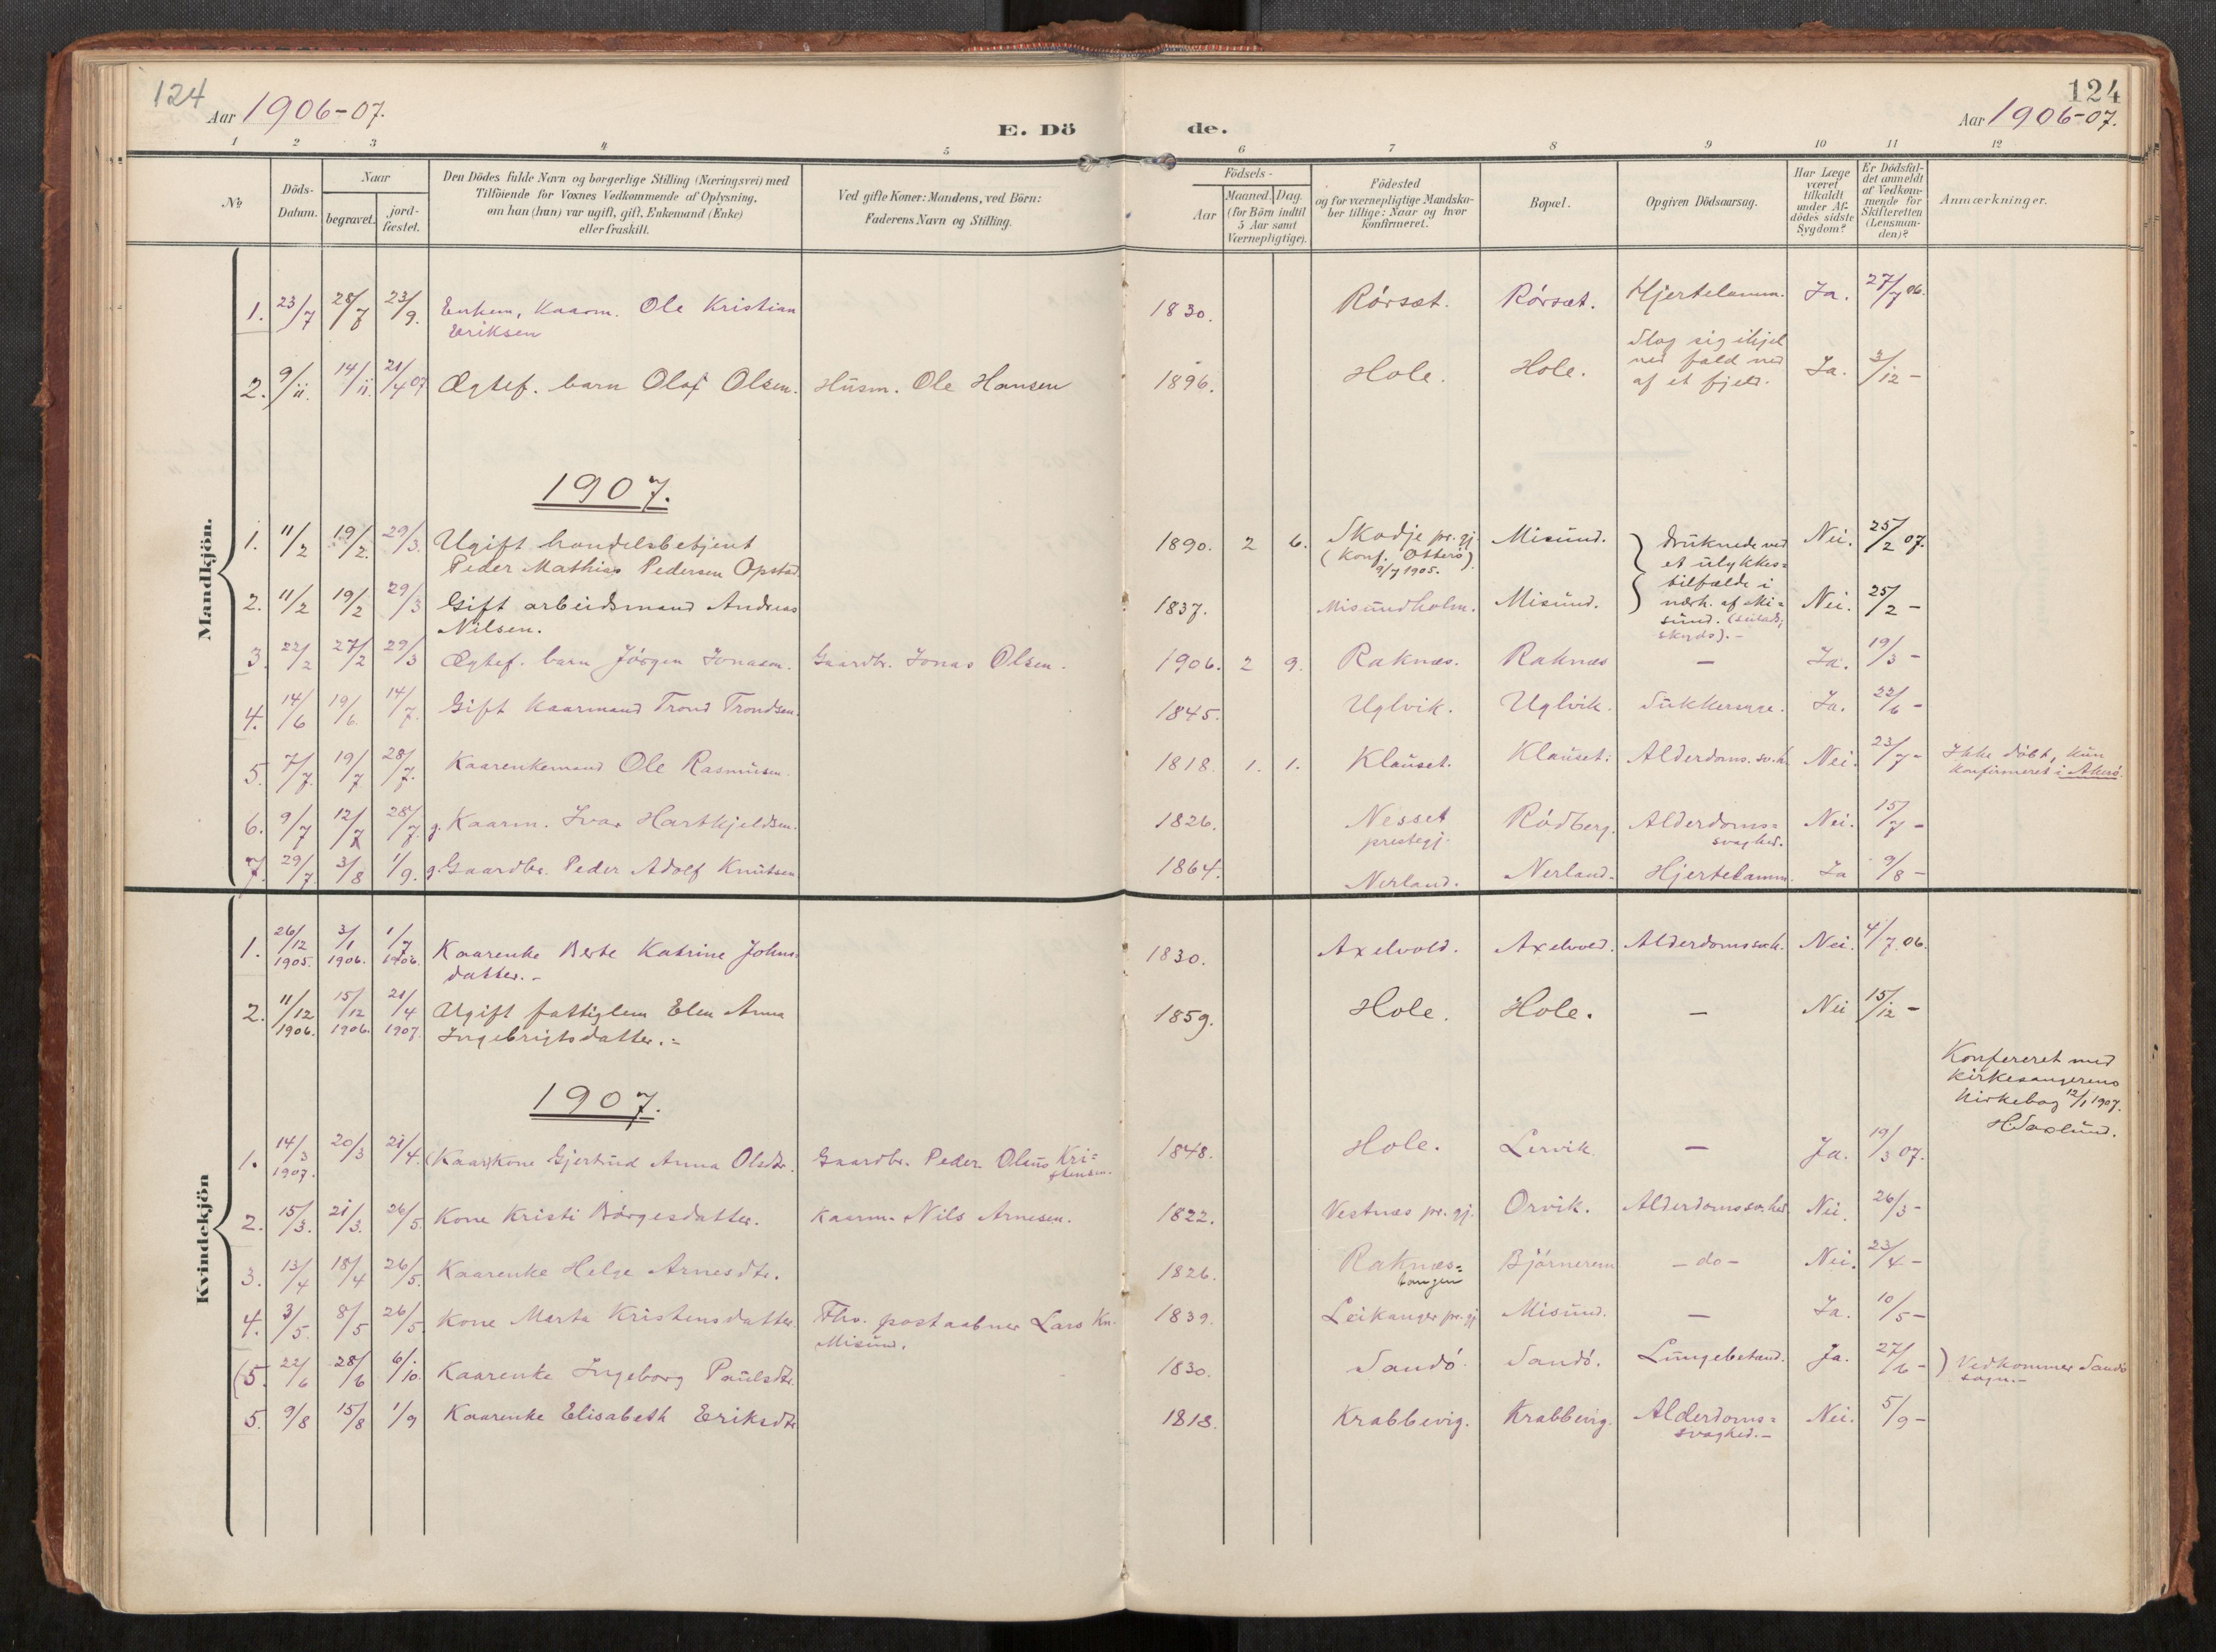 124
124
Aar 1906-07.
E. Dö
de.
Aar 1906-07.
1 2 3 4 5 6 7 8 9 10 11 12
No
Döds-
Datum.
Naar
begravet.
jord-
fæstet.
Den Dödes fulde Navn og borgerlige Stilling (Næringsvei) med
Tilföiende for Voxnes Vedkommende af Oplysning,
om han (hun) var ugift, gift, Enkemand (Enke)
eller fraskilt.
Ved gifte Koner: Mandens, ved Börn:
Faderens Navn og Stilling.
Födsels-
Aar
Maaned. Dag.
(for Börn indtil
5 Aar samt
Værnepligtige).
Födested
og for værnepligtige Mandska-
ber tillige: Naar og hvor
konfirmeret.
Bopæl.
Opgiven Dödsaarsag.
Har Læge
været
tilkaldt
under Af-
dödes sidste
Sygdom?
Er Dödsfal-
det anmeldt
af Vedkom-
mende for
Skifteretten
(Lensman-
den)?
Anmærkninger.
Mandkjön.
1. 23/7 28/7 23/9. Enkem, Kaarm. Ole Kristian 1830. Rórsæt. Rórsæt. Hjertelamm. Ja. 27/7 06.
Eriksen
Slog sig ihjel
2. 9/11. 14/11. 21/4 07 Ægtef. barn Olaf Olsen. Húsm. Ole Hansen 1896. Hole. Hole. ved fald ned Ja. 3/12 -
af et fjeld.
1907.
1. 11/2 19/2. 29/3. Ugift handelsbetjent 1890. 2 6. Skodje pr. gj. Misúnd. drúknede ved Nei. 25/2 07.
Peder Mathias Pedersen Opstad (Konf. Otterö) et úlykkes=
9/7 1905. tilfælde i
2. 11/2 19/2 29/3 Gift arbeidsmand Andreas 1837. Misúndholm. Misúnd. nærh. af Mi= Nei. 25/2 -
Nilsen. súnd.
skyds).-
3. 22/2 27/2 29/3 Ægtef. barn Jórgen Jonasen. Gaardbr. Jonas Olsen. 1906. 2 9. Raknæs. Raknæs - Ja. 19/3 -
4. 14/6 19/6. 14/7. Gift Kaarmand Trond Trondsen. 1845. Uglvik. Uglvik. Súkkersyge. Ja. 22/6 -
5. 7/7. 19/7 28/7. Kaarenkemand Ole Rasmúsen. 1818. 1. 1. Klaúset. Klaúset. Alderdoms.sv.h. Nei. 23/7 - Ikke dóbt, kún
konfirmeret i Akeró.
6. 9/7 12/7 28/7. g. Kaarm. Ivar Hartkjeldsen. 1826. Nesset Ródberg. Alderdoms= Nei. 15/7 -
prestegj. svaghed.
7. 29/7. 3/8 1/9. g. Gaardbr. Peder Adolf Knútsen 1864. Nerland. Nerland. Hjertelamm. Ja 9/8 -
Kvindekjön
1. 26/12 1905. 3/1 1906. 1/7 1906. Kaarenke Berte Katrine Johns= 1830. Axelvold. Axelvold. Alderdomssvh. Nei. 4/7 06.
datter.-
2. 11/12 1906. 15/12 1906. 21/4 1907. Ugift fattiglem Elen Anna 1859. Hole. Hole. - Nei 15/12 -
Ingebrigtsdatter.-
Konfereret med
kirkesangerens
kirkebog 12/1 1907.
H. Saxlúnd.
1907.
1. 14/3 1907. 20/3 21/4. (Kaar)kone Gjertrúd Anna Olsdtr. Gaardbr. Peder Olaús Kri= 1848. Hole. Lervik - Ja. 19/3 07.
stensen.
2. 15/3. 21/3. 26/5 Kone Kristi Bórgesdatter. Kaarm. Nils Arnesen. 1822. Vestnæs pr. gj. Orvik. Alderdomssv.hed Nei. 26/3 -
3. 13/4 18/4 26/5. Kaarenke Helge Arnesdtr. 1826. Raknæs= Bjórnerem - do - Nei. 23/4 -
tangen
4. 3/5. 8/5 26/5. Kone Marta Kristensdatter. Fhv. postaabner Lars Kn. 1839. Leikanger pr. gj Misúnd. - Ja. 10/5 -
Misúnd.
(5. 22/6 28/6 6/10. Kaarenke Ingeborg Paúlsdtr. 1830. Sandó. Sandó. Lúngebetænd. Ja. 27/6 - ) Vedkommer Sandö
sogn.-
5. 9/8 15/8 1/9 Kaarenke Elisabeth Eriksdtr. 1818. Krabbevig. Krabbevig. Alderdoms= Nei. 5/9 -
svaghed.-